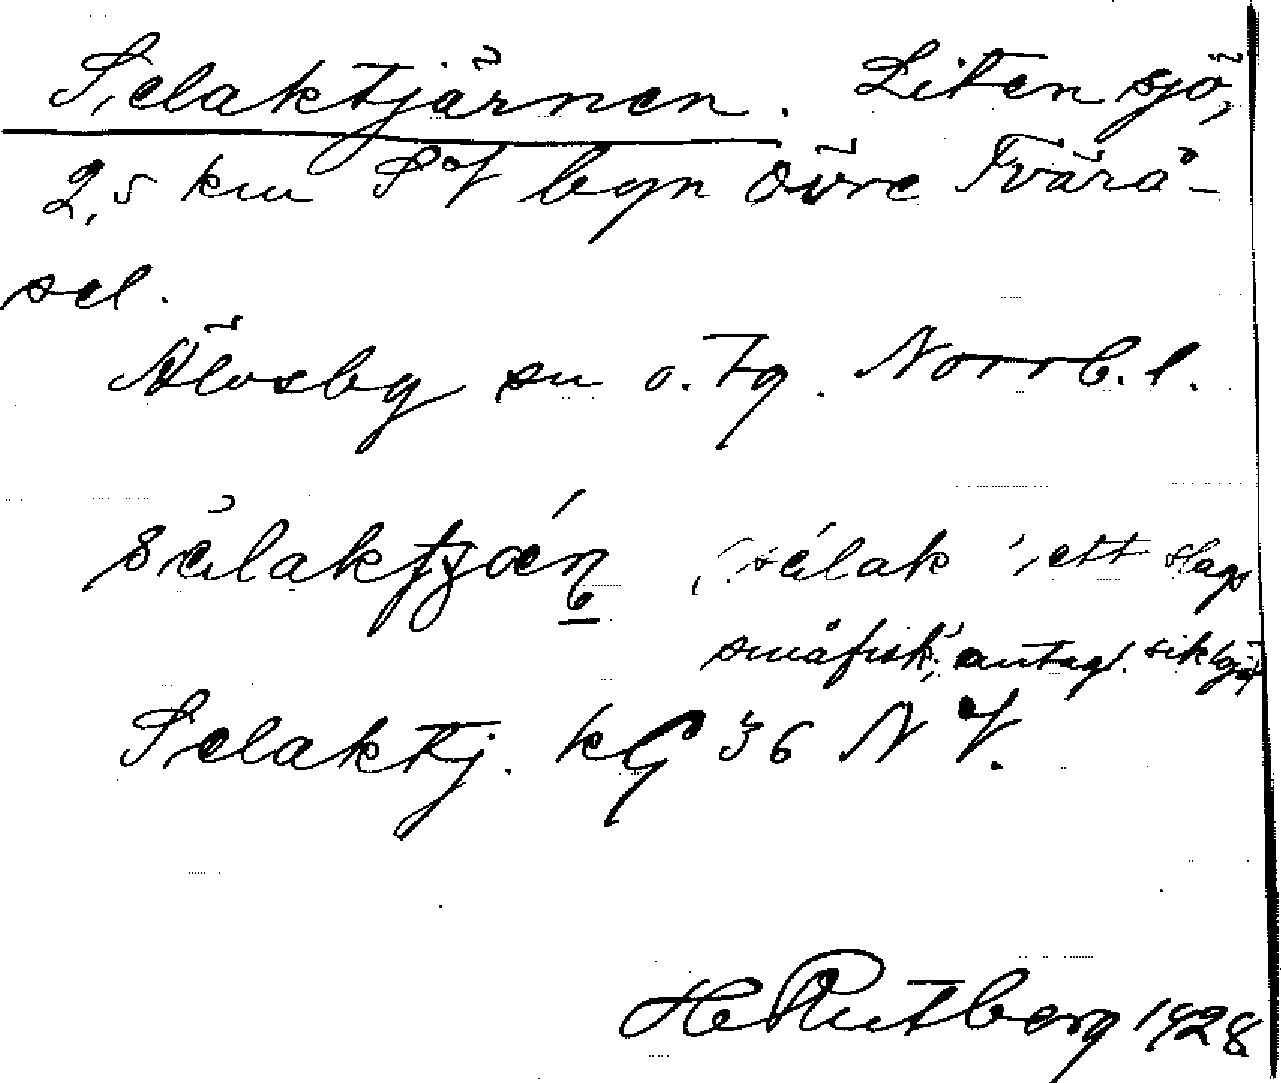 Selaktjärnen. Liten sjö,
2,5 km SV byn Övre Tvärå-
sel.
Älvsby sn o. tg. Norrb. l.
(sélak 'ett slags
småfisk', antagl.
Selaktj. kG 36 NV.
H Rutberg 1928